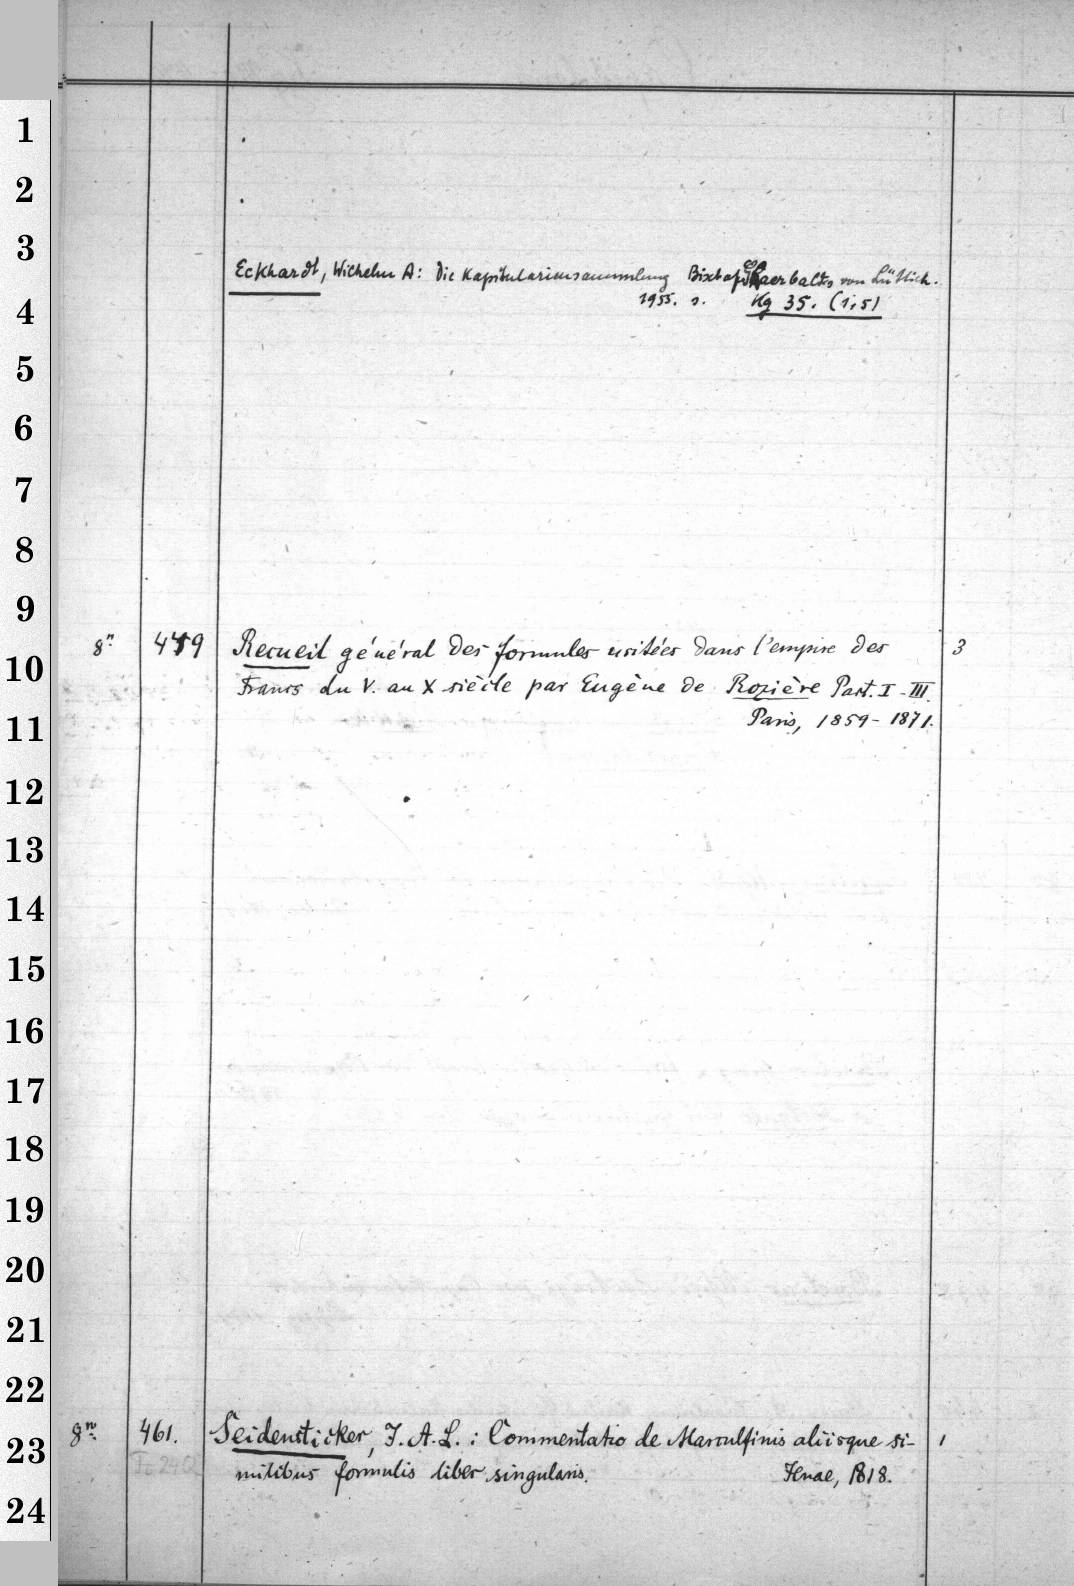 1
2
3
Eckhardt, Wilhelm A: Die Kapitulariensammlung Bischof Ghaerbalds von Lüttich.
4
1955. s. Kg 35. (1,5)
5
6
7
8
9
8º 459 Recueil général des formules usitées dans l'empire des 3
10
Francs du V. au X siècle par Eugène de Rozière Part. I-III.
11
Paris, 1859-1871.
12
13
14
15
16
17
18
19
20
21
22
8º 461. Seidensticker, J. A. L.: Commentatio de Marculfinis aliisque si- 1
23
milibus formulis liber singularis. Jenae, 1818.
24